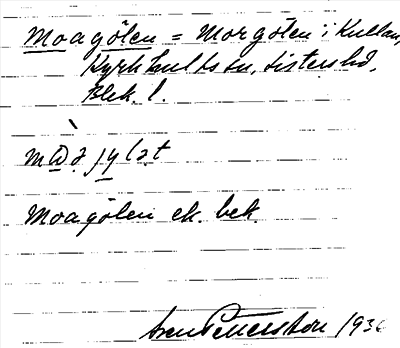 Moagölen = Morgölen i Kullan,
Kyrkhults sn, Listers hd,
Blek. l.
Moagölen ek. bek.
Sven Petersson 193